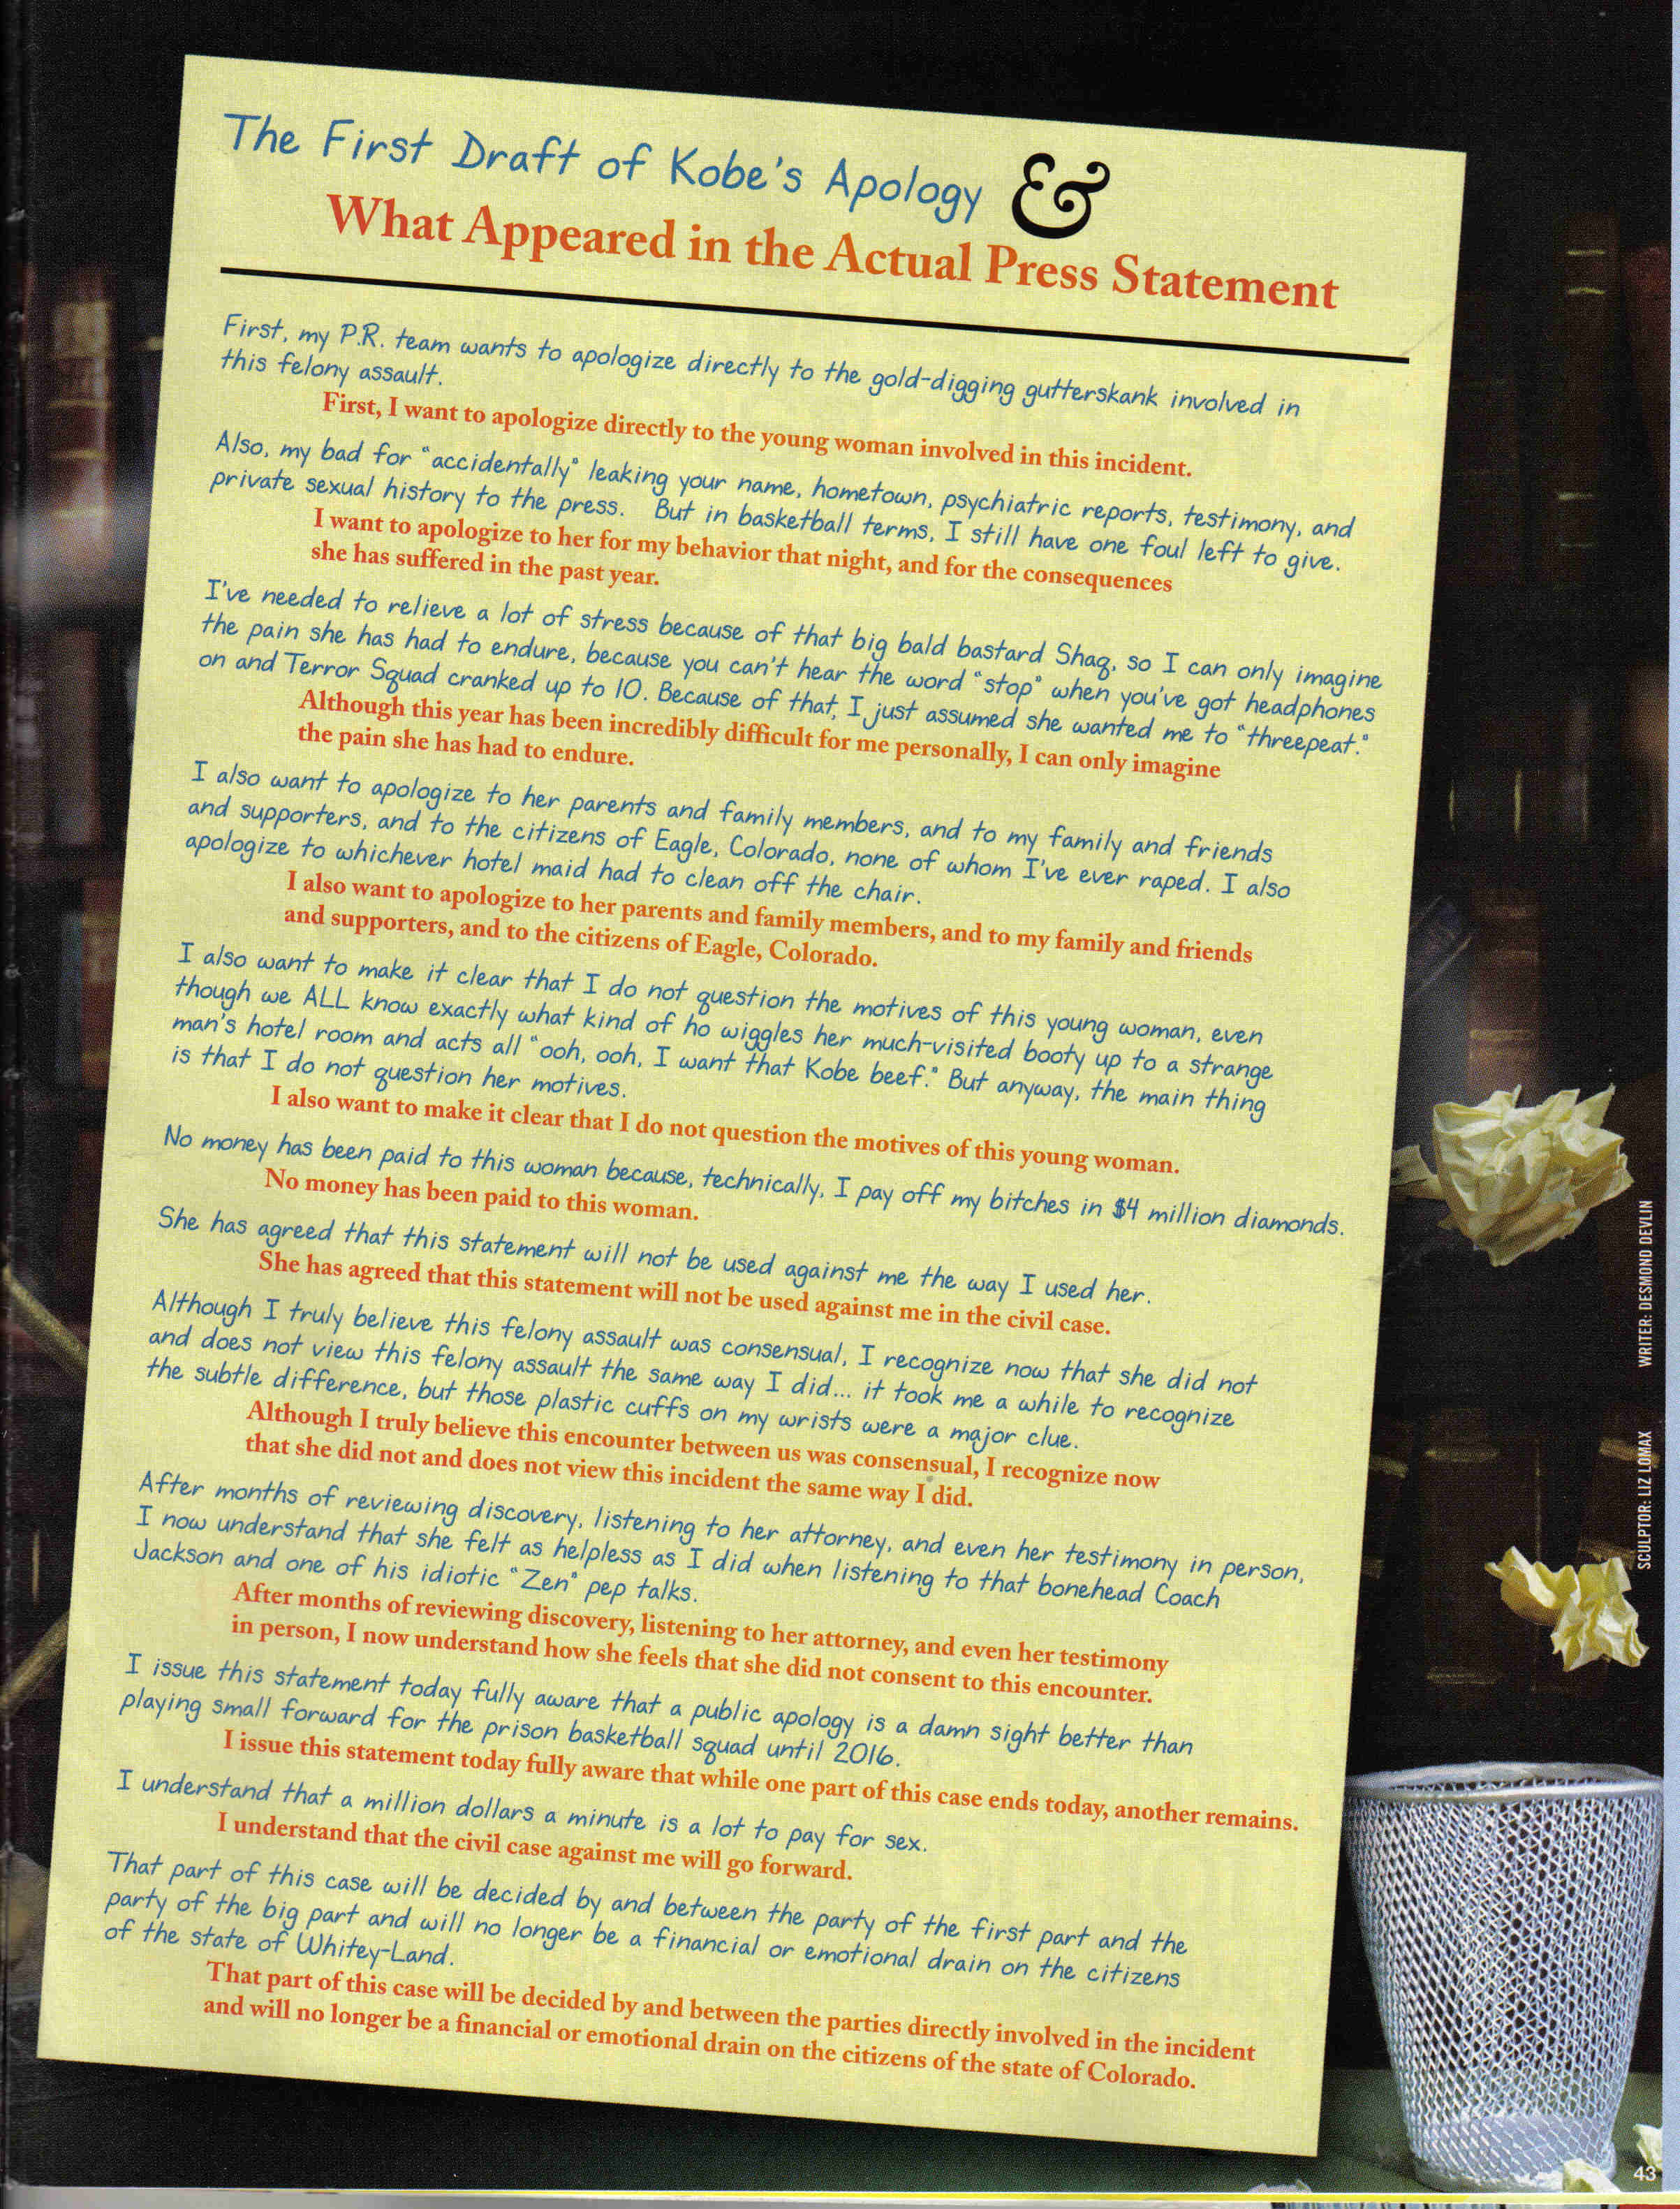 The First Draft of Kobe's Apology &
What Appeared in the Actual Press Statement
First, my P.R. team wants to apologize directly to the gold-digging gutterskank involved in
this felony assault.
First, I want to apologize directly to the young woman involved in this incident.
Also, my bad for "accidentally" leaking your name, hometown, psychiatric reports, testimony, and
private sexual history to the press. But in basketball terms, I still have one foul left to give.
I want to apologize to her for my behavior that night, and for the consequences
she has suffered in the past year.
I've needed to relieve a lot of stress because of that big bald bastard Shaq, so I can only imagine
the pain she has had to endure, because you can't hear the word "stop" when you've got headphones
on and Terror Squad cranked up to 10. Because of that, I just assumed she wanted me to "threepeat."
Although this year has been incredibly difficult for me personally, I can only imagine
the pain she has had to endure.
I also want to apologize to her parents and family members, and to my family and friends
and supporters, and to the citizens of Eagle, Colorado, none of whom I've ever raped. I also
apologize to whichever hotel maid had to clean off the chair.
I also want to apologize to her parents and family members, and to my family and friends
and supporters, and to the citizens of Eagle, Colorado.
I also want to make it clear that I do not question the motives of this young woman, even
though we ALL know exactly what kind of ho wiggles her much-visited booty up to a strange
man's hotel room and acts all "ooh, ooh, I want that Kobe beef." But anyway, the main thing
is that I do not question her motives.
I also want to make it clear that I do not question the motives of this young woman.
No money has been paid to this woman because, technically, I pay off my bitches in $4 million diamonds.
No money has been paid to this woman.
She has agreed that this statement will not be used against me the way I used her.
She has agreed that this statement will not be used against me in the civil case.
Although I truly believe this felony assault was consensual, I recognize now that she did not
and does not view this felony assault the same way I did... it took me a while to recognize
the subtle difference, but those plastic cuffs on my wrists were a major clue.
Although I truly believe this encounter between us was consensual, I recognize now
that she did not and does not view this incident the same way I did.
After months of reviewing discovery, listening to her attorney, and even her testimony in person,
I now understand that she felt as helpless as I did when listening to that bonehead Coach
Jackson and one of his idiotic "Zen" pep talks.
After months of reviewing discovery, listening to her attorney, and even her testimony
in person, I now understand how she feels that she did not consent to this encounter.
I issue this statement today fully aware that a public apology is a damn sight better than
playing small forward for the prison basketball squad until 2016.
I issue this statement today fully aware that while one part of this case ends today, another remains.
I understand that a million dollars a minute is a lot to pay for sex.
I understand that the civil case against me will go forward.
That part of this case will be decided by and between the party of the first part and the
party of the big part and will no longer be a financial or emotional drain on the citizens
of the state of Whitey-Land.
That part of this case will be decided by and between the parties directly involved in the incident
and will no longer be a financial or emotional drain on the citizens of the state of Colorado.
SCULPTOR: LIZ LOMAX WRITER: DESMOND DEVLIN
43